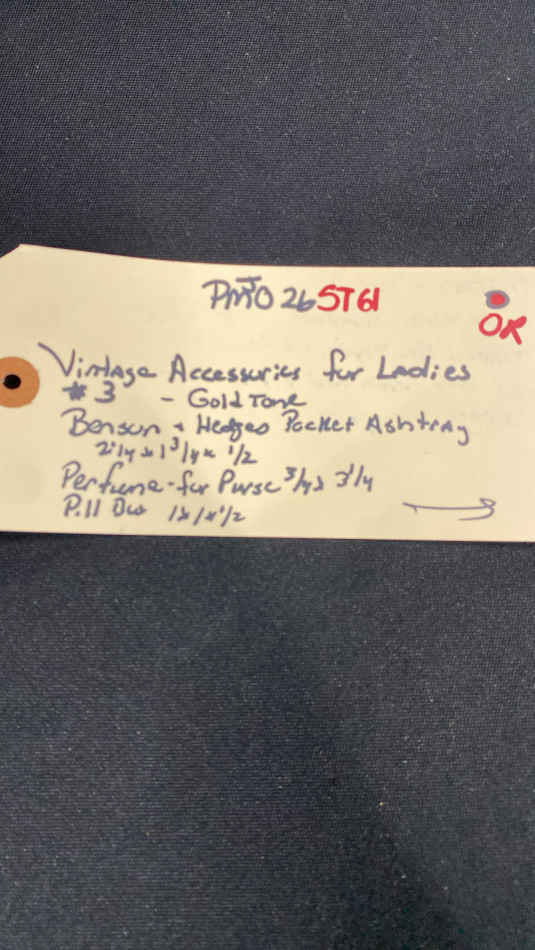 PMTO 26 ST61
OK
Vintage Accessories for Ladies
# 3 - Gold Tone
Benson + Hedges Pocket Ashtray
2 1/4 x 1 3/4 x 1/2
Perfume - for Purse 3/4 x 3 1/4
Pill Box 1 x 1 x 1/2